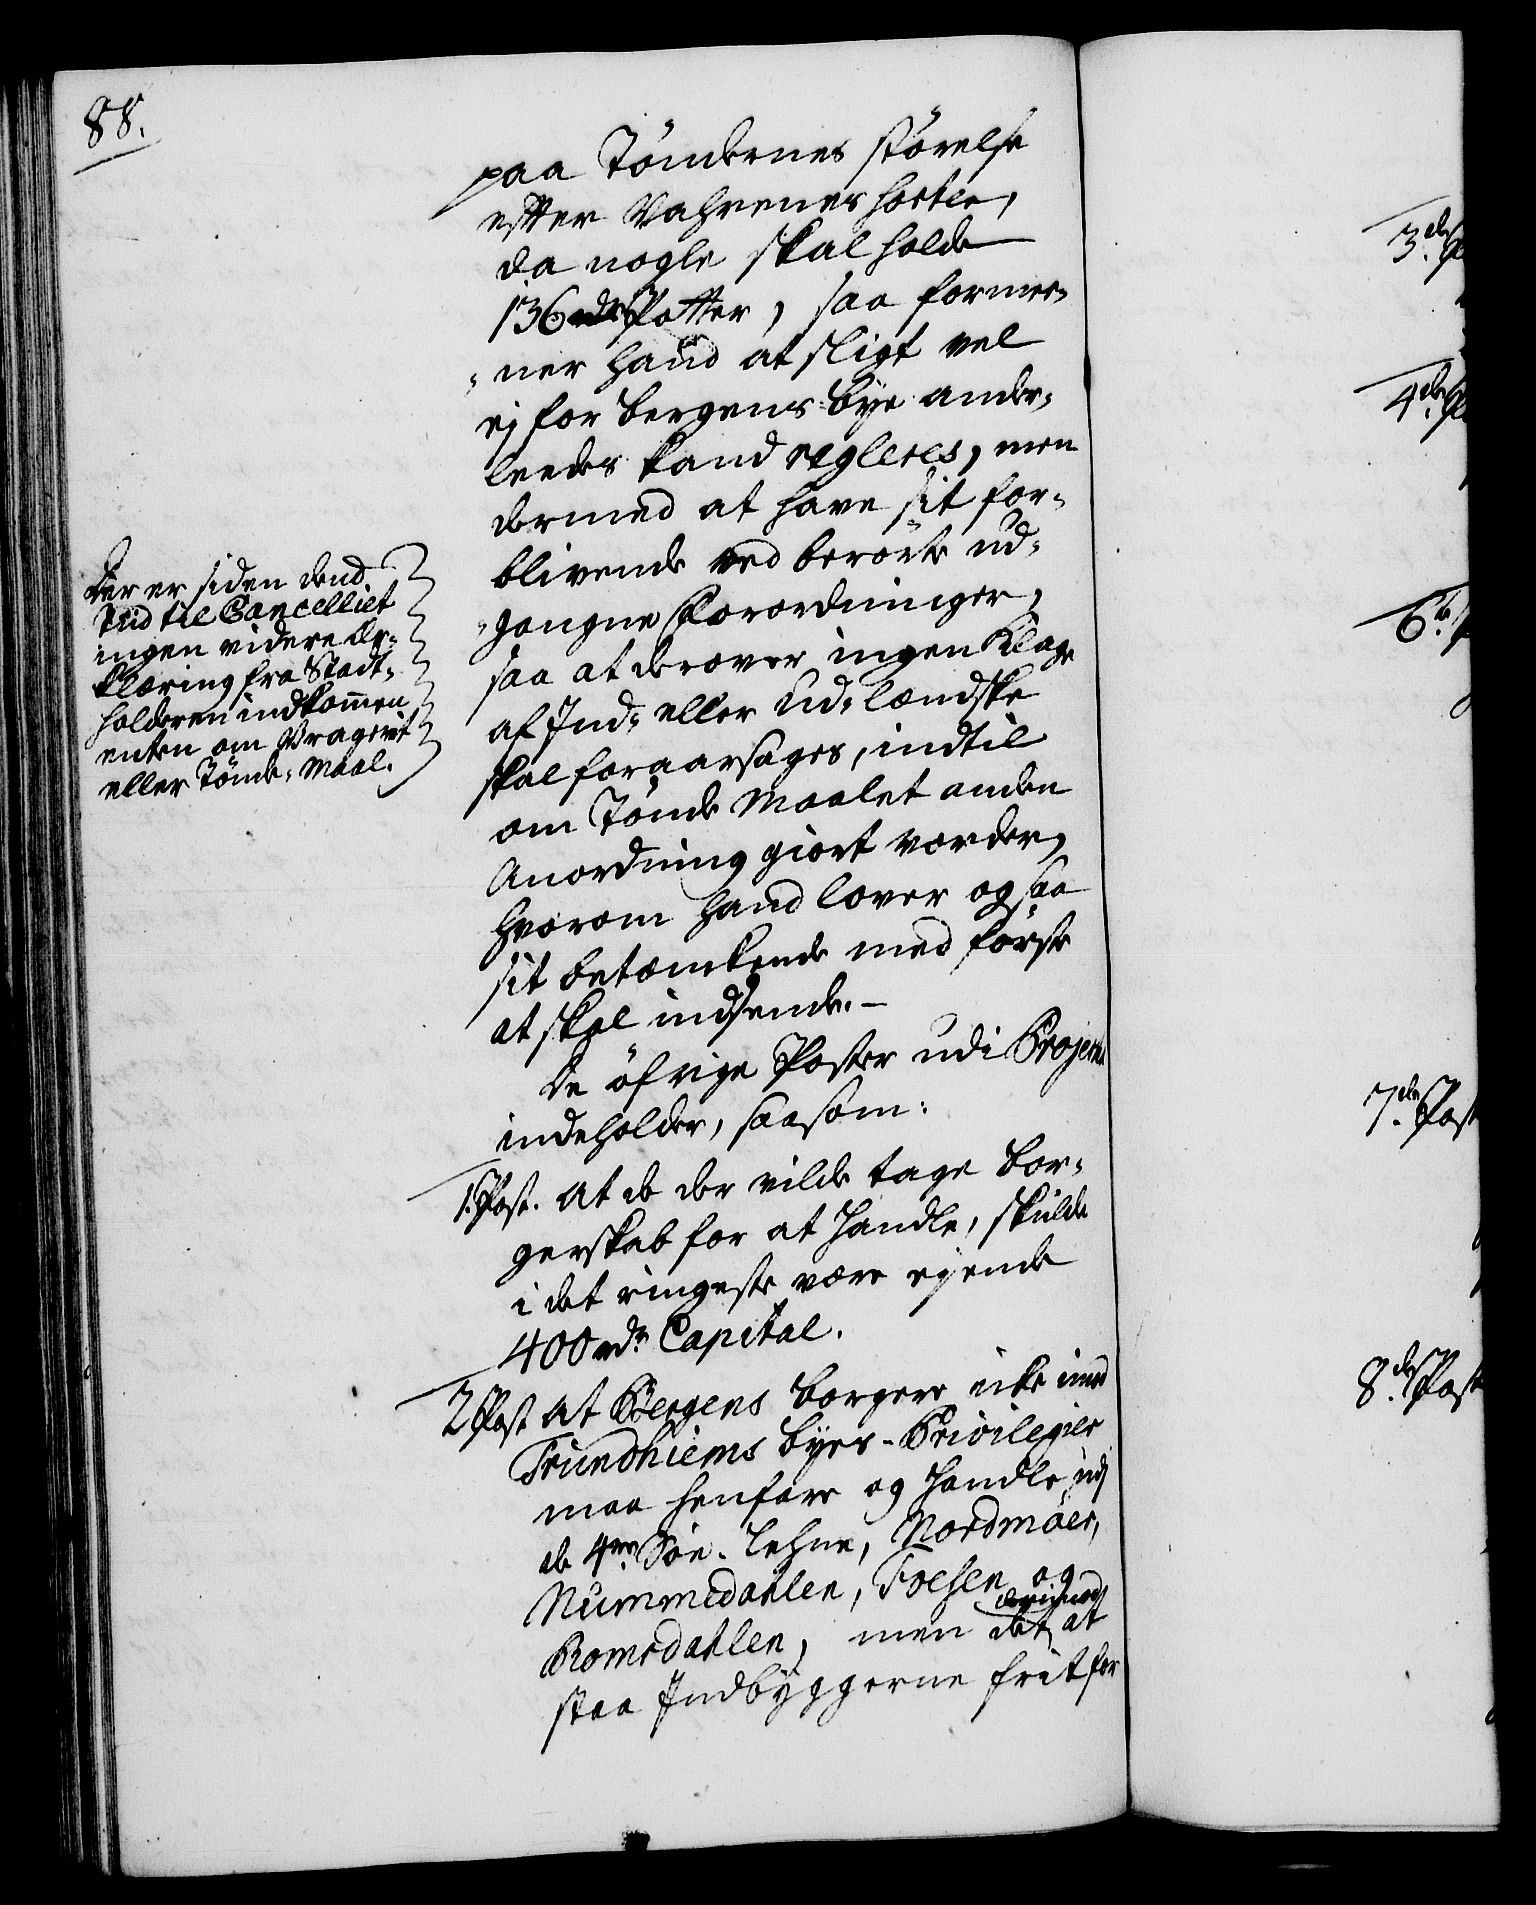 88.
paa Töndernes störelse
efter Vahrenes sorter,
da nogle skal holde
136 Potter, saa formee-
ner hand at sligt vel
ej for bergens bye ander-
leedes kand regleres, men
dermed at have sit for-
blivende ved berörte ud-
gangne Forordninger,
saa at derover ingen Klage
af Ind- eller Udlændske
skal foraarsages, indtil
om Tönde Maalet anden
Anordning giort vorder,
hvorom hand lover ogsaa
sit betænkende med förste
at skal indsende.-
De öfrige Poster udi Projectet
indeholder, saasom:
1. Post. At de der vilde tage bor-
gerskab for at handle, skulde
i det ringeste være ejende
400 rdr. Capital.
2 Post At Bergens borgere icke imod
Trundhiems byes Privilegier
maa henfare og handle udj
de 4re Söe-Lehne, Nordmöer,
Nummedahlen, Foesen og
Romsdahlen, men det at
staa Indbyggerne frit for
Der er siden dend
Tiid til Cancelliet
ingen videre Er-
klæring fra Stadt-
holderen indkommen
enten om Vrageriet
eller Tönde-Maal.
3de
4de
6te
7de Post
8de Post